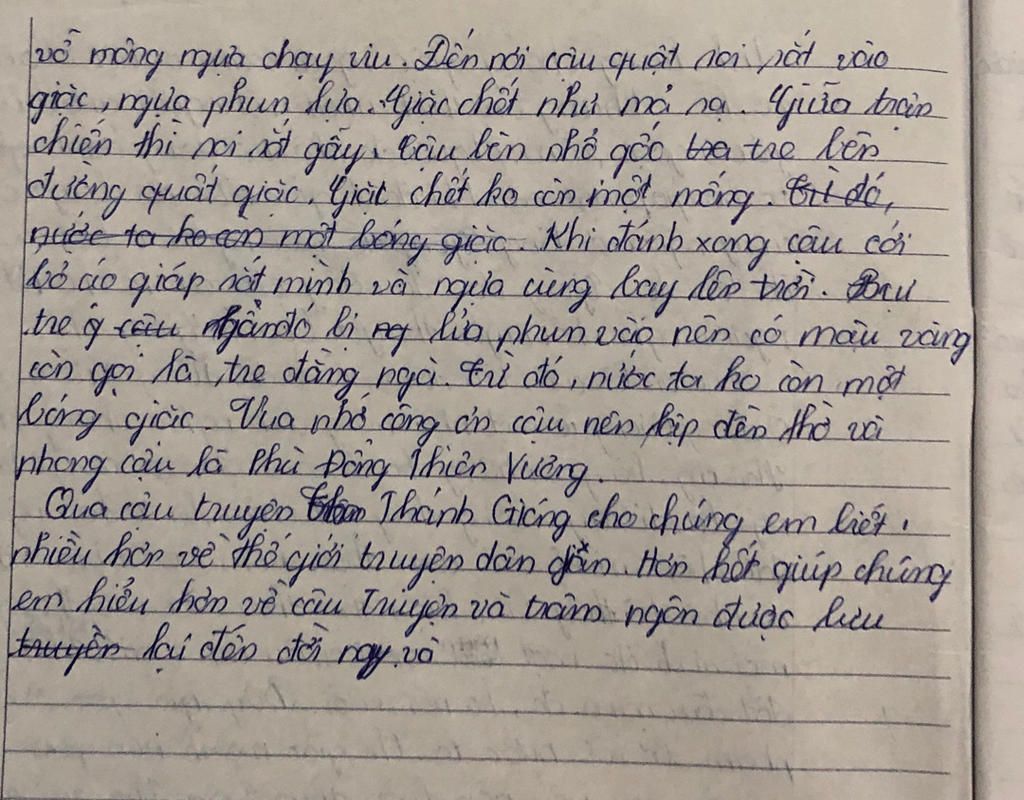 vỗ mông ngựa chạy viu. Đến nơi cậu quật roi sắt vào
giặc, ngựa phun lửa. Giặc chết như mả rạ. Giữa trận
chiến thì roi sắt gãy, Cậu bèn nhổ gốc tre tre bên
đường quất giặc. Giặc chết ko còn một mống. Từ đó,
nước ta ko còn một bóng giặc. Khi đánh xong cậu cởi
bỏ áo giáp sắt mình và ngựa cùng bay lên trời. Bụi
tre ở gần đó bị lửa phun vào nên có màu vàng
còn gọi là tre đằng ngà. Từ đó, nước ta ko còn một
bóng giặc. Vua nhớ công ơn cậu nên lập đền thờ và
phong cậu là Phù Đổng Thiên Vương.
Qua câu truyện Thánh Gióng cho chúng em biết
nhiều hơn về thế giới truyện dân gian. Hơn hết giúp chúng
em hiểu hơn về câu Truyện và trâm ngôn được lưu
truyền lại đến đời nay và